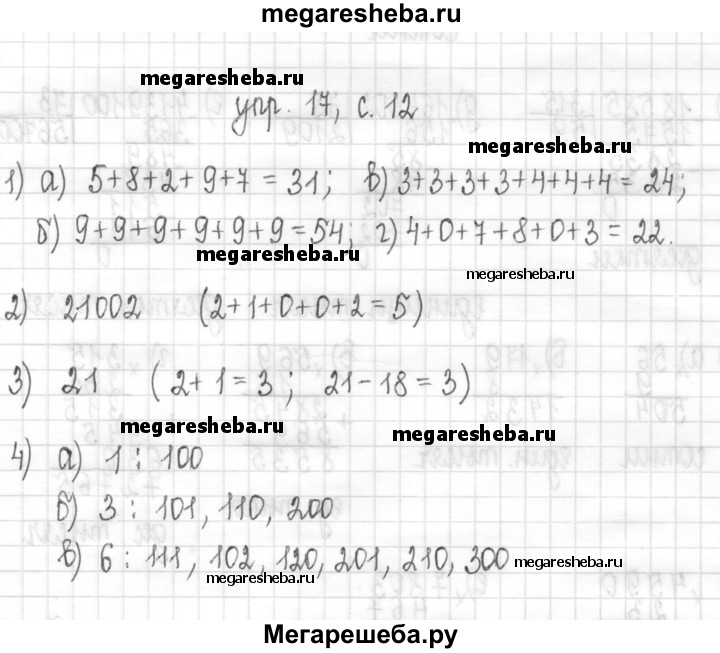 megaresheba.ru
megaresheba.ru
упр. 17, с. 12
megaresheba.ru
1) а) 5+8+2+9+7 = 31; в) 3+3+3+3+4+4+4 = 24;
б) 9+9+9+9+9+9 = 54; г) 4+0+7+8+0+3 = 22.
megaresheba.ru
megaresheba.ru
2) 21002 (2+1+0+0+2 = 5)
3) 21 (2+1 = 3; 21-18 = 3)
megaresheba.ru
megaresheba.ru
4) а) 1 : 100
б) 3 : 101, 110, 200
в) 6 : 111, 102, 120, 201, 210, 300
megaresheba.ru
megaresheba.ru
Мегарешеба.ру